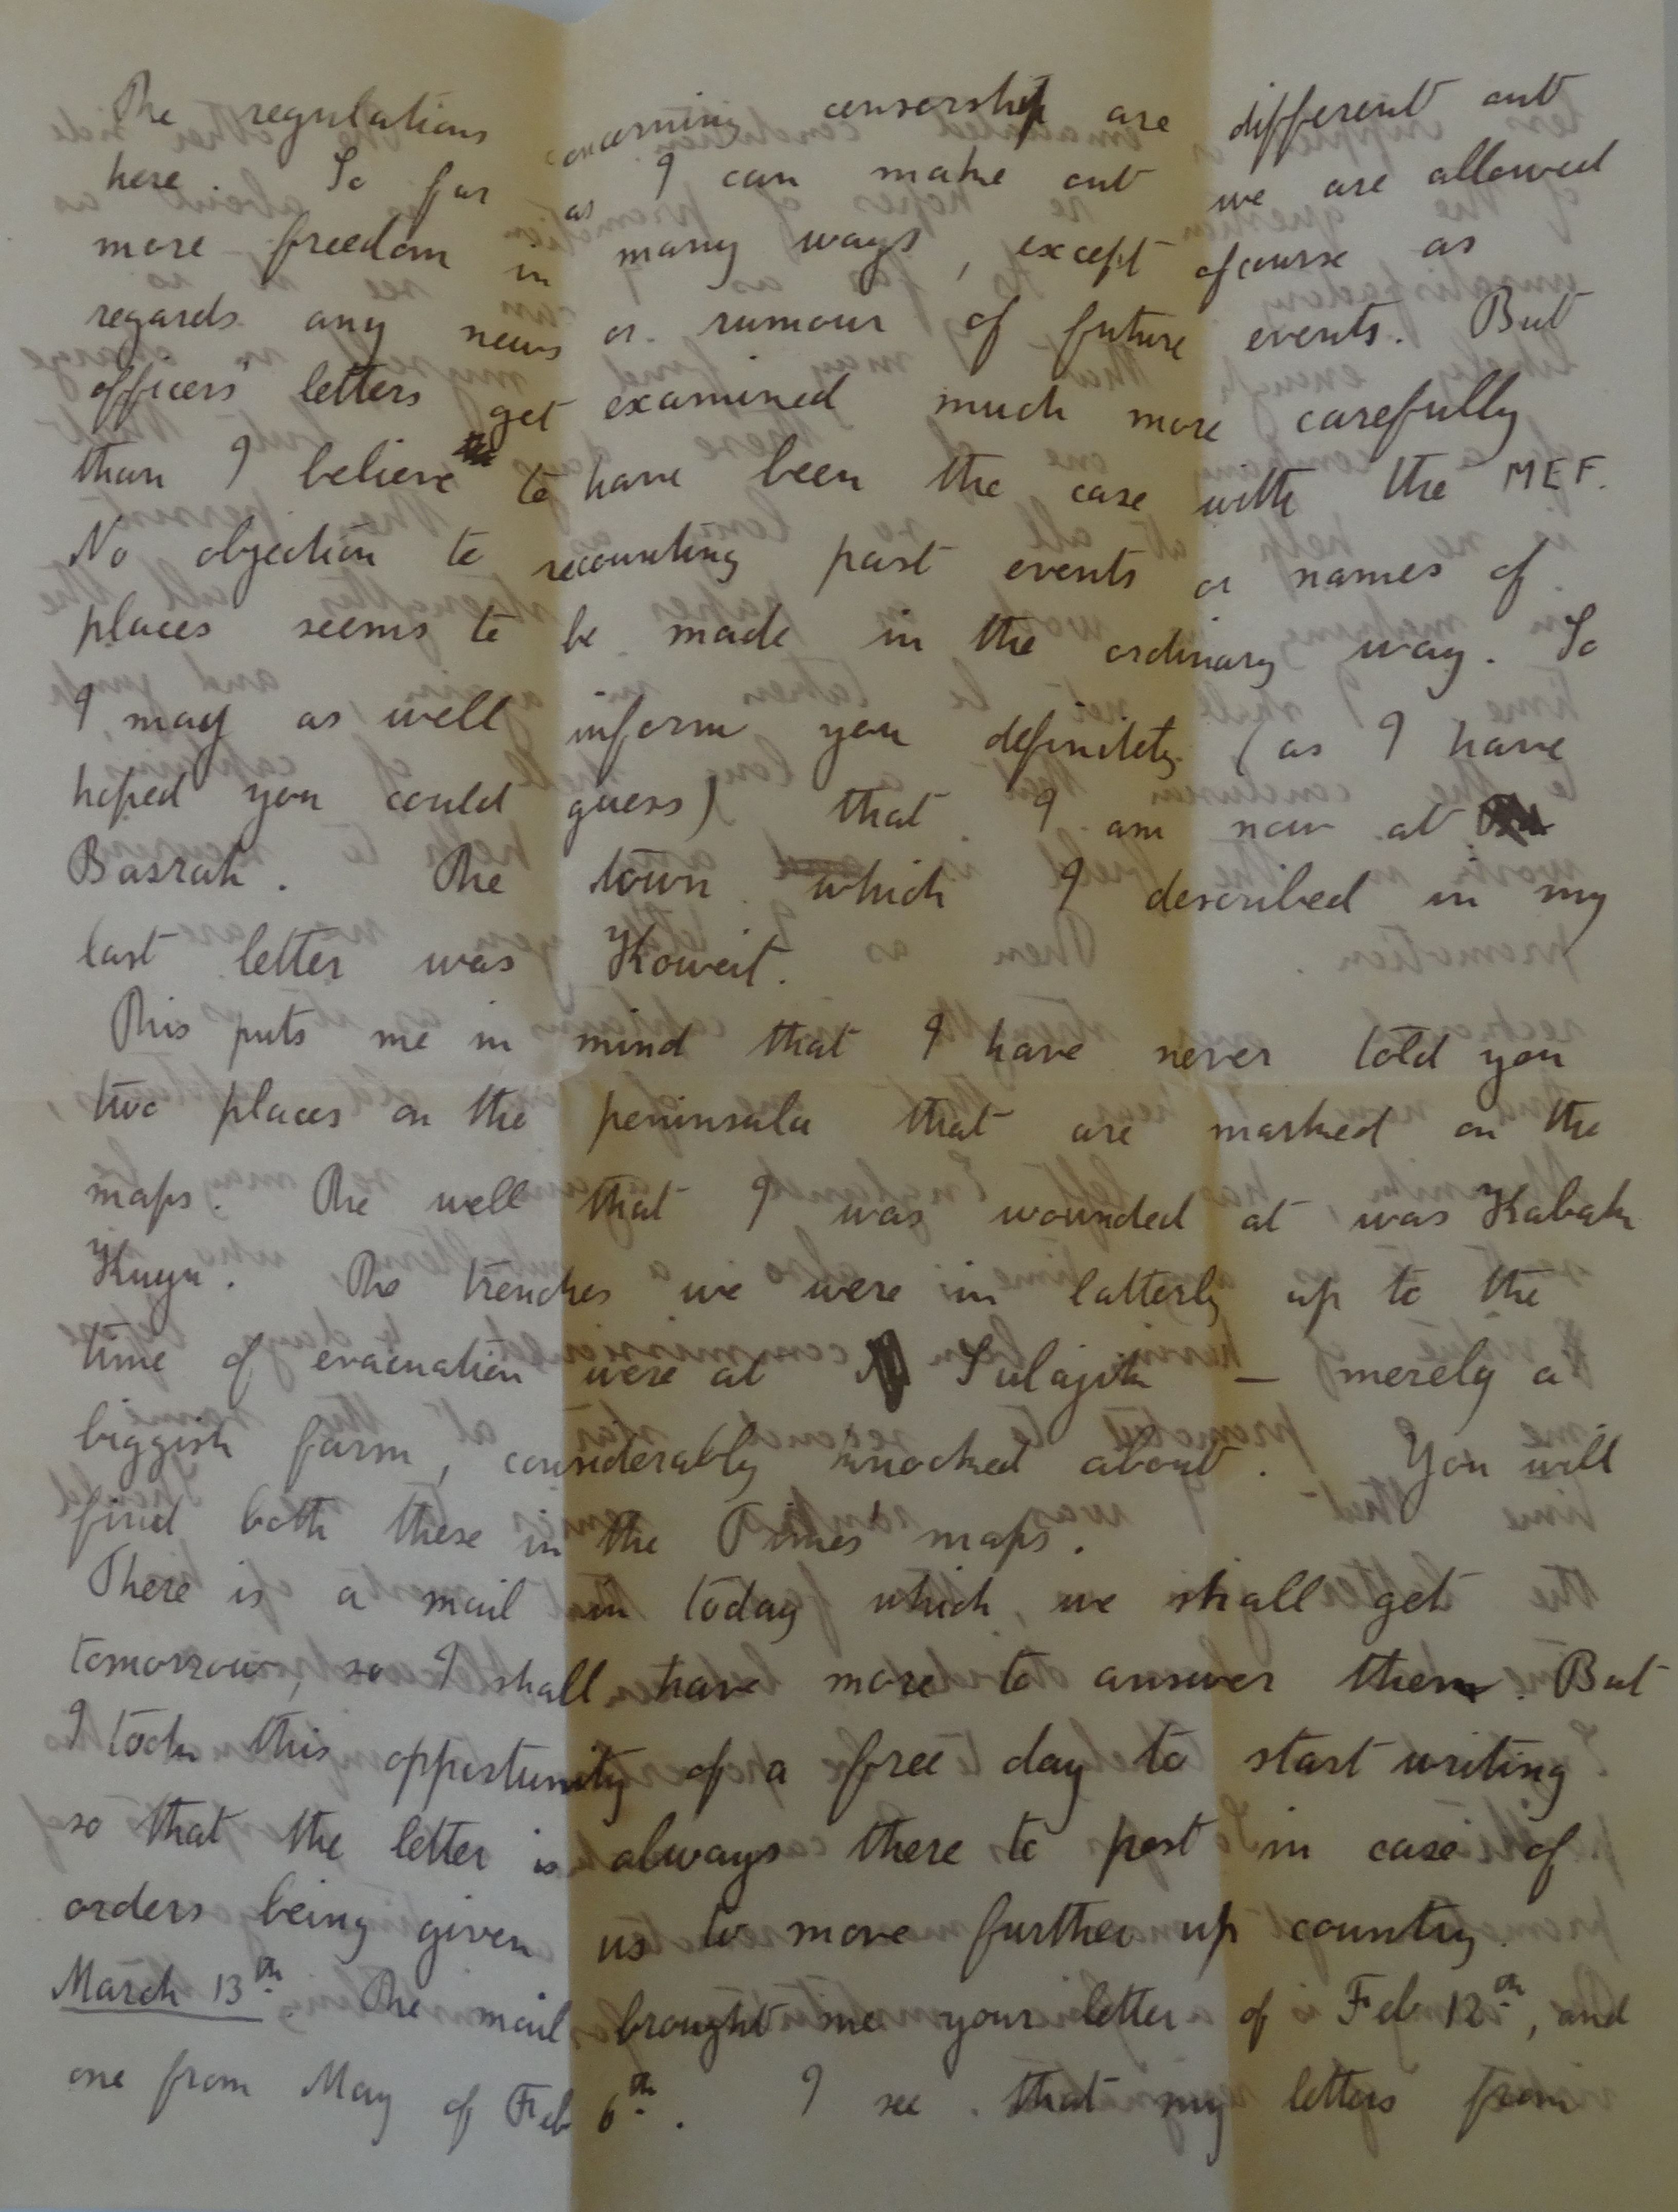 The regulations concerning censorship are different out
here. So far as I can make out we are allowed
more freedom in many ways, except ofcourse as
regards any news or rumour of future events. But
officers' letters get examined much more carefully
than I believe to have been the case with the MEF.
No objection to recounting past events or names of
places seems to be made in the ordinary way. So
I may as well inform you definitely (as I have
hoped you could guess) that I am now at
Basrah. The town which I described in my
last letter was Koweit.
This puts me in mind that I have never told you
two places on the peninsula that are marked on the
maps. The well that I was wounded at was Kabak
Kuyu. The trenches we were in latterly up to the
time of evacuation were at Sulajik — merely a
biggish farm, considerably knocked about. You will
find both these in the Times maps.
There is a mail in today which we shall get
tomorrow, so I shall have more to answer then. But
I took this opportunity of a free day to start writing
so that the letter is always there to post in case of
orders being given us to move further up country.
March 13th. The mail brought me your letter of Feb 12th, and
one from May of Feb 6th. I see that my letters from